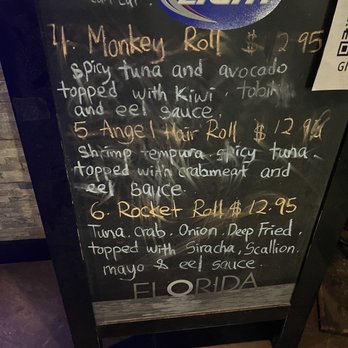 LIGHT
4. Monkey Roll $12.95
spicy tuna and avocado
topped with Kiwi, tobi
and eel sauce
5. Angel Hair Roll $12.95
Shrimp tempura, spicy tuna
topped with crabmeat and
eel sauce.
6. Rocket Roll $12.95
Tuna, Crab, Onion, Deep Fried,
topped with Siracha, Scallion,
mayo & eel sauce.
FLORIDA